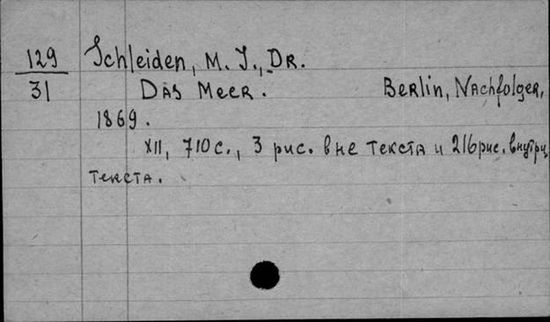 129 Schleiden, M. J., Dr.
31 Das Meer. Berlin, Nachfolger,
1869.
XII, 710 с., 3 рис. вне текста и 216 рис. внутри
текста.